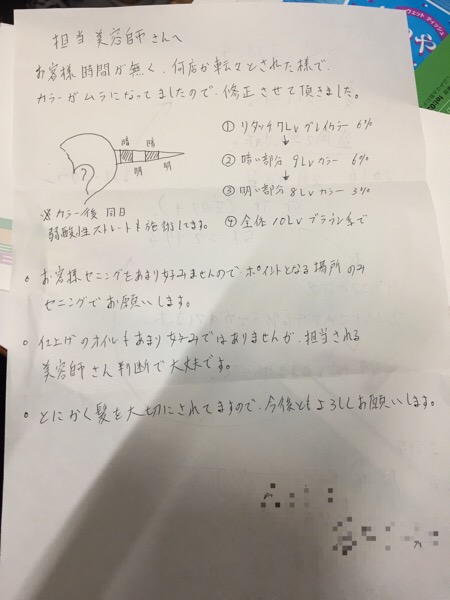 担当美容師さんへ
お客様時間が無く、何店か転々とされた様で、
カラーがムラになってましたので、修正させて頂きました。
① リタッチ 7Lv グレイカラー 6%
② 暗い部分 9Lv カラー 6%
③ 明い部分 8Lv カラー 3%
④ 全体 10Lv ブラウン系で
暗 暗
明 明
※カラー後 同日
弱酸性ストレートも施術してます。
○ お客様セニングをあまり好みませんので、ポイントとなる場所のみ
セニングでお願いします。
○ 仕上げのオイルもあまり好みではありませんが、担当される
美容師さん判断で大丈夫です。
○ とにかく髪を大切にされてますので、今後ともよろしくお願いします。
ウェットティッシュ